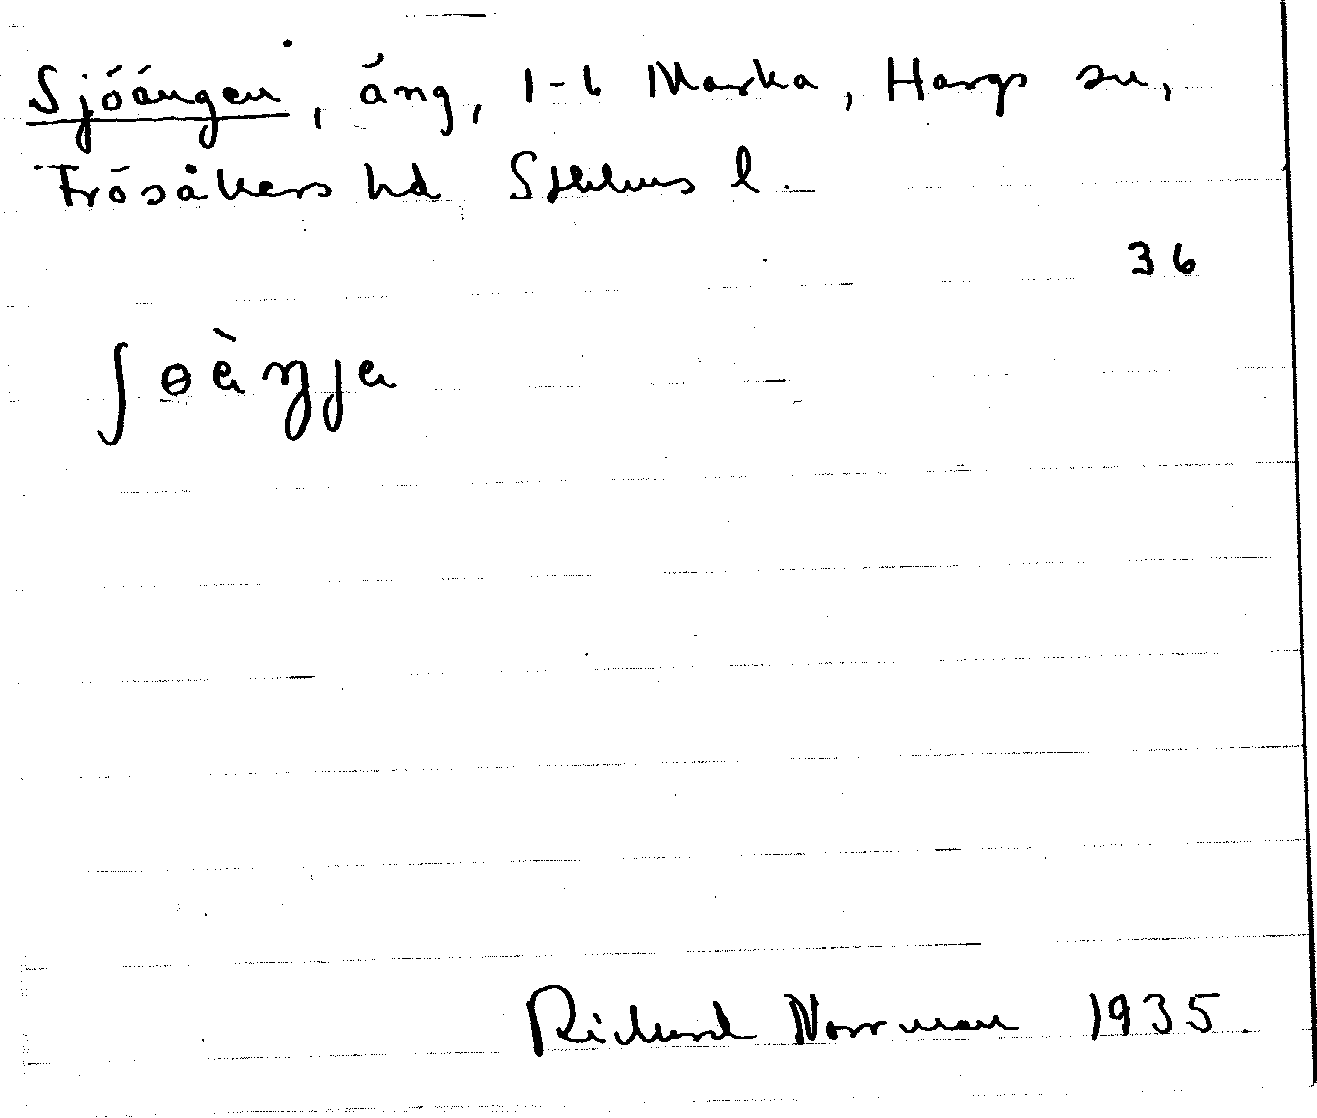 Sjöängen, äng, 1-6 Marka, Hargs sn,
Frösåkers hd Sthlms l.
36
ʃɵèŋja
Richard Norrman 1935.